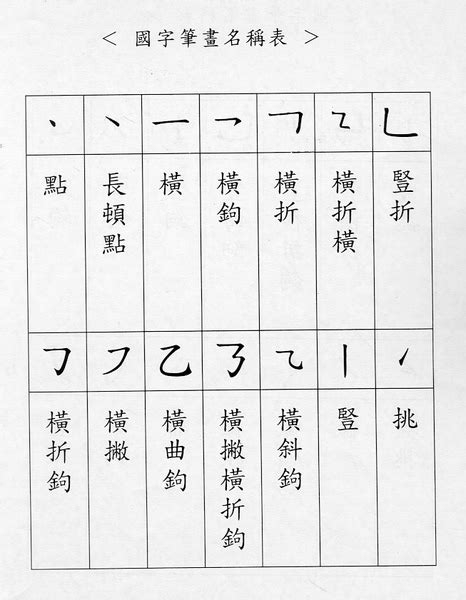 < 國字筆畫名稱表 >
丶 ㇔ 一 ㇖ ㇕ ㇅ ㇗
點
長頓點
橫
橫鉤
橫折
橫折橫
豎折
㇆ ㇇ 乙 ㇌ ⺄ 丨 ㇀
橫折鉤
橫撇
橫曲鉤
橫撇橫折鉤
橫斜鉤
豎
挑